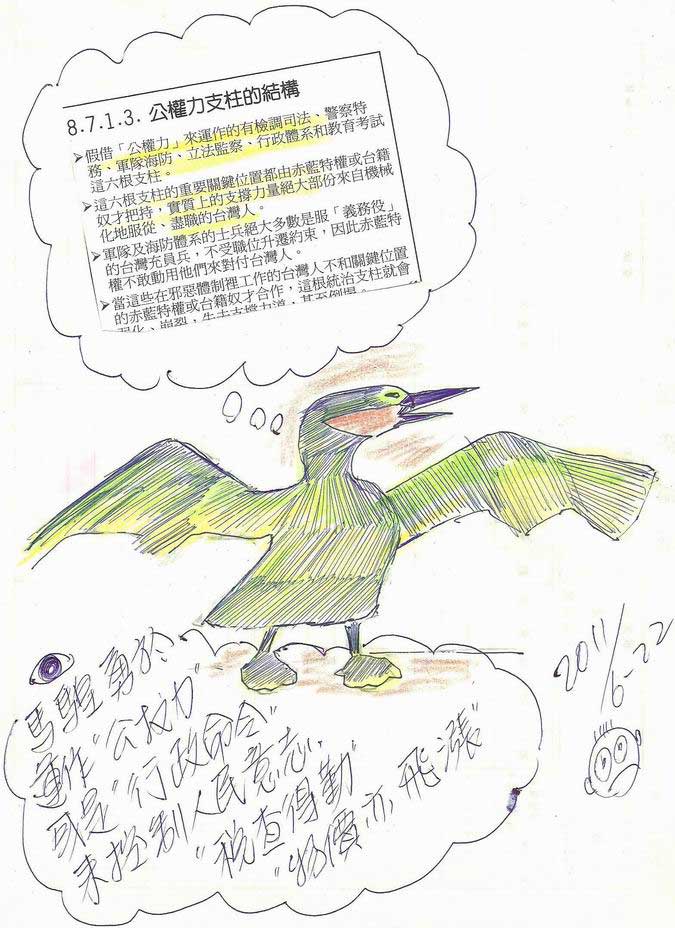 8.7.1.3. 公權力支柱的結構
➢假借「公權力」來運作的有檢調司法、警察特
務、軍隊海防、立法監察、行政體系和教育考試
這六根支柱。
➢這六根支柱的重要關鍵位置都由赤藍特權或台籍
奴才把持，實質上的支撐力量絕大部份來自機械
化地服從、盡職的台灣人。
➢軍隊及海防體系的士兵絕大多數是服「義務役」
的台灣充員兵，不受職位升遷約束，因此赤藍特
權不敢動用他們來對付台灣人。
➢當這些在邪惡體制裡工作的台灣人不和關鍵位置
的赤藍特權或台籍奴才合作，這根統治支柱就會
弱化、崩裂，失去支撐力道，甚至倒塌。
2011/6-22
馬 勇於
運作"公权力"
或是"行政命令"
來控制人民意志,
"稅查得勤"
"物價亦飛漲"